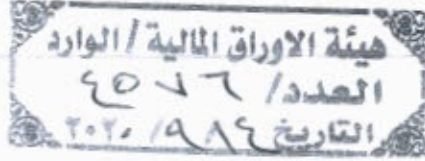 هيئة الاوراق المالية / الوارد
العدد / ٤٥٧٦
التاريخ ٩/١٤/ ٢٠٢٠